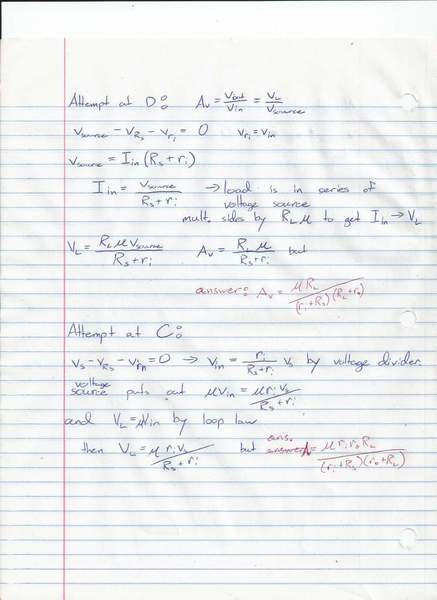 Attempt at D: A_v = v_out/v_in = v_L/v_source
v_source − v_Rs − v_ri = 0 v_ri = v_in
v_source = I_in (R_s + r_i)
I_in = v_source/(R_s + r_i) → load is in series of
voltage source
mult. sides by R_L μ to get I_in → V_L
V_L = R_L μ v_source/(R_s + r_i) A_v = R_L μ/(R_s + r_i) but
answer: A_v = μ R_L/((r_i + R_s)(R_L + r_o))
Attempt at C:
v_s − v_Rs − v_in = 0 → v_in = r_i/(R_s + r_i) v_s by voltage divider.
voltage
source puts out μv_in = μ r_i v_s/(R_s + r_i)
and V_L = μv_in by loop law
then V_L = μ r_i v_s/(R_s + r_i) but ans. = μ r_i v_s R_L/((r_i + R_s)(r_o + R_L))